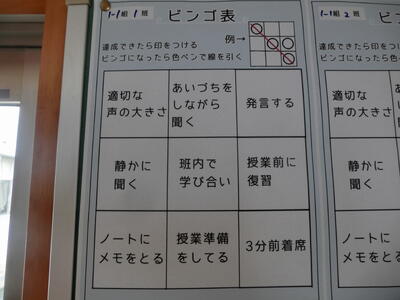 1-1組 1班
ビンゴ表
例→
達成できたら印をつける
ビンゴになったら色ペンで線を引く
適切な
声の大きさ
あいづちを
しながら
聞く
発言する
静かに
聞く
班内で
学び合い
授業前に
復習
ノートに
メモをとる
授業準備
をしてる
3分前着席
1-1組 2班
ビン
達成できたら印を
ビンゴになったら
適切な
声の大きさ
静かに
聞く
ノートに
メモをとる